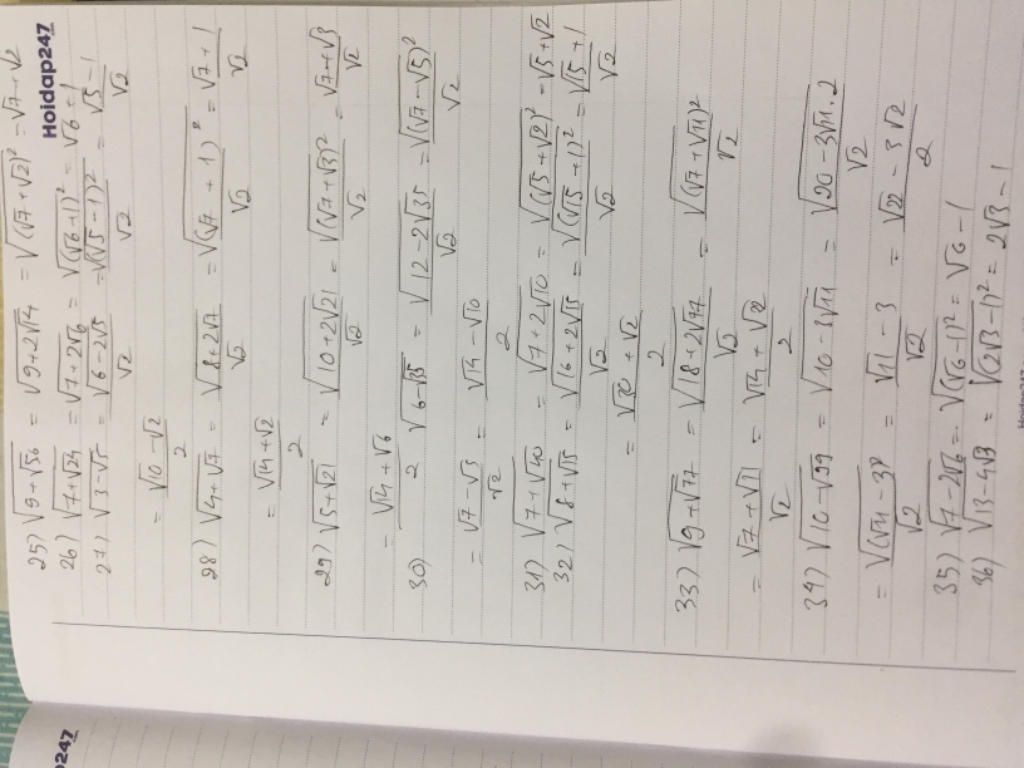 Hoidap247
25) √(9+√56) = √(9+2√14) = √((√7+√2)²) = √7+√2
26) √(7+√24) = √(7+2√6) = √((√6+1)²) = √6+1
27) √(3-√5) = √(6-2√5)/√2 = √((√5-1)²)/√2 = (√5-1)/√2
= (√10-√2)/2
28) √(4+√7) = √(8+2√7)/√2 = √((√7+1)²)/√2 = (√7+1)/√2
= (√14+√2)/2
29) √(5+√21) = √(10+2√21)/√2 = √((√7+√3)²)/√2 = (√7+√3)/√2
= (√14+√6)/2
30) √(6-√35) = √(12-2√35)/√2 = √((√7-√5)²)/√2
= (√7-√5)/√2 = (√14-√10)/2
31) √(7+√40) = √(7+2√10) = √((√5+√2)²) = √5+√2
32) √(8+√15) = √(16+2√15)/√2 = √((√15+1)²)/√2 = (√15+1)/√2
= (√30+√2)/2
33) √(9+√77) = √(18+2√77)/√2 = √((√7+√11)²)/√2
= (√7+√11)/√2 = (√14+√22)/2
34) √(10-√99) = √(10-3√11) = √(20-3√11.2)/√2
= (√11-3)/√2 = (√22-3√2)/2
35) √(7-2√6) = √((√6-1)²) = √6-1
36) √(13-4√3) = √((2√3-1)²) = 2√3-1
0247